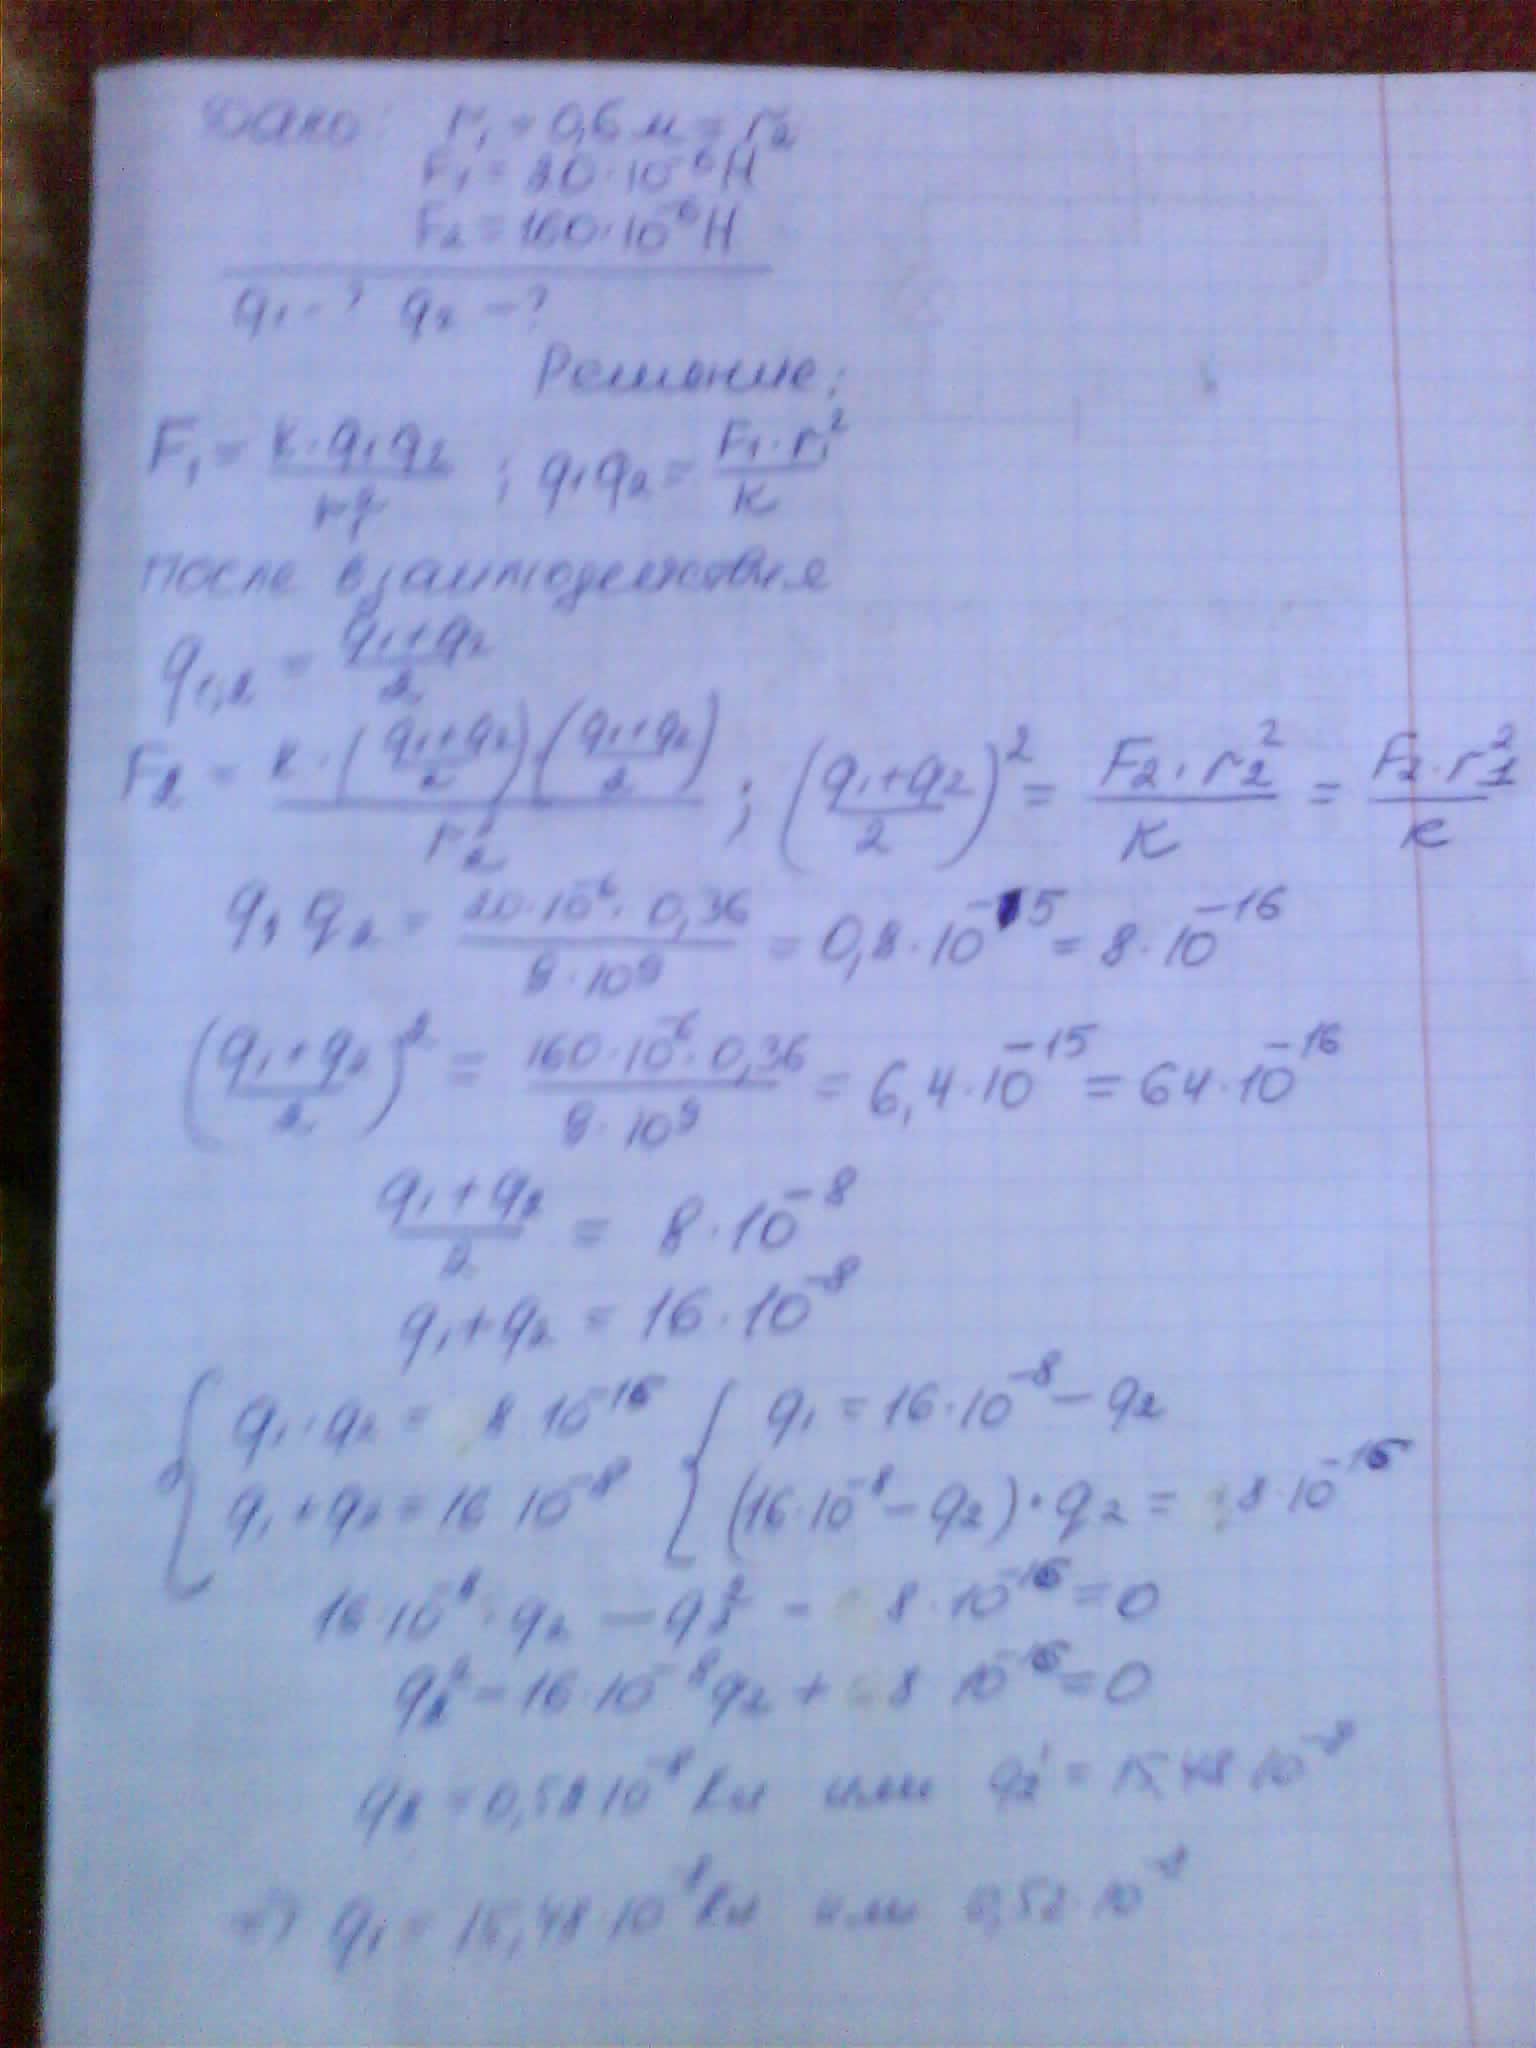 Дано: r₁ = 0,6 м = r₂
F₁ = 20·10⁻⁶ Н
F₂ = 160·10⁻⁶ Н
q₁ - ? q₂ - ?
Решение:
F₁ = k·q₁q₂ / r₁² ; q₁q₂ = F₁·r₁² / k
После взаимодействия
q₁,₂ = (q₁+q₂) / 2
F₂ = k·((q₁+q₂)/2)((q₁+q₂)/2) / r₂² ; ((q₁+q₂)/2)² = F₂·r₂² / k = F₂·r₁² / k
q₁q₂ = 20·10⁻⁶·0,36 / 9·10⁹ = 0,8·10⁻¹⁵ = 8·10⁻¹⁶
((q₁+q₂)/2)² = 160·10⁻⁶·0,36 / 9·10⁹ = 6,4·10⁻¹⁵ = 64·10⁻¹⁶
(q₁+q₂)/2 = 8·10⁻⁸
q₁+q₂ = 16·10⁻⁸
{ q₁·q₂ = 8·10⁻¹⁶ { q₁ = 16·10⁻⁸ − q₂
q₁+q₂ = 16·10⁻⁸ (16·10⁻⁸ − q₂)·q₂ = 8·10⁻¹⁶
16·10⁻⁸·q₂ − q₂² − 8·10⁻¹⁶ = 0
q₂² − 16·10⁻⁸q₂ + 8·10⁻¹⁶ = 0
q₂ = 0,52·10⁻⁸ Кл или q₂' = 15,48·10⁻⁸
=> q₁ = 15,48·10⁻⁸ Кл или 0,52·10⁻⁸